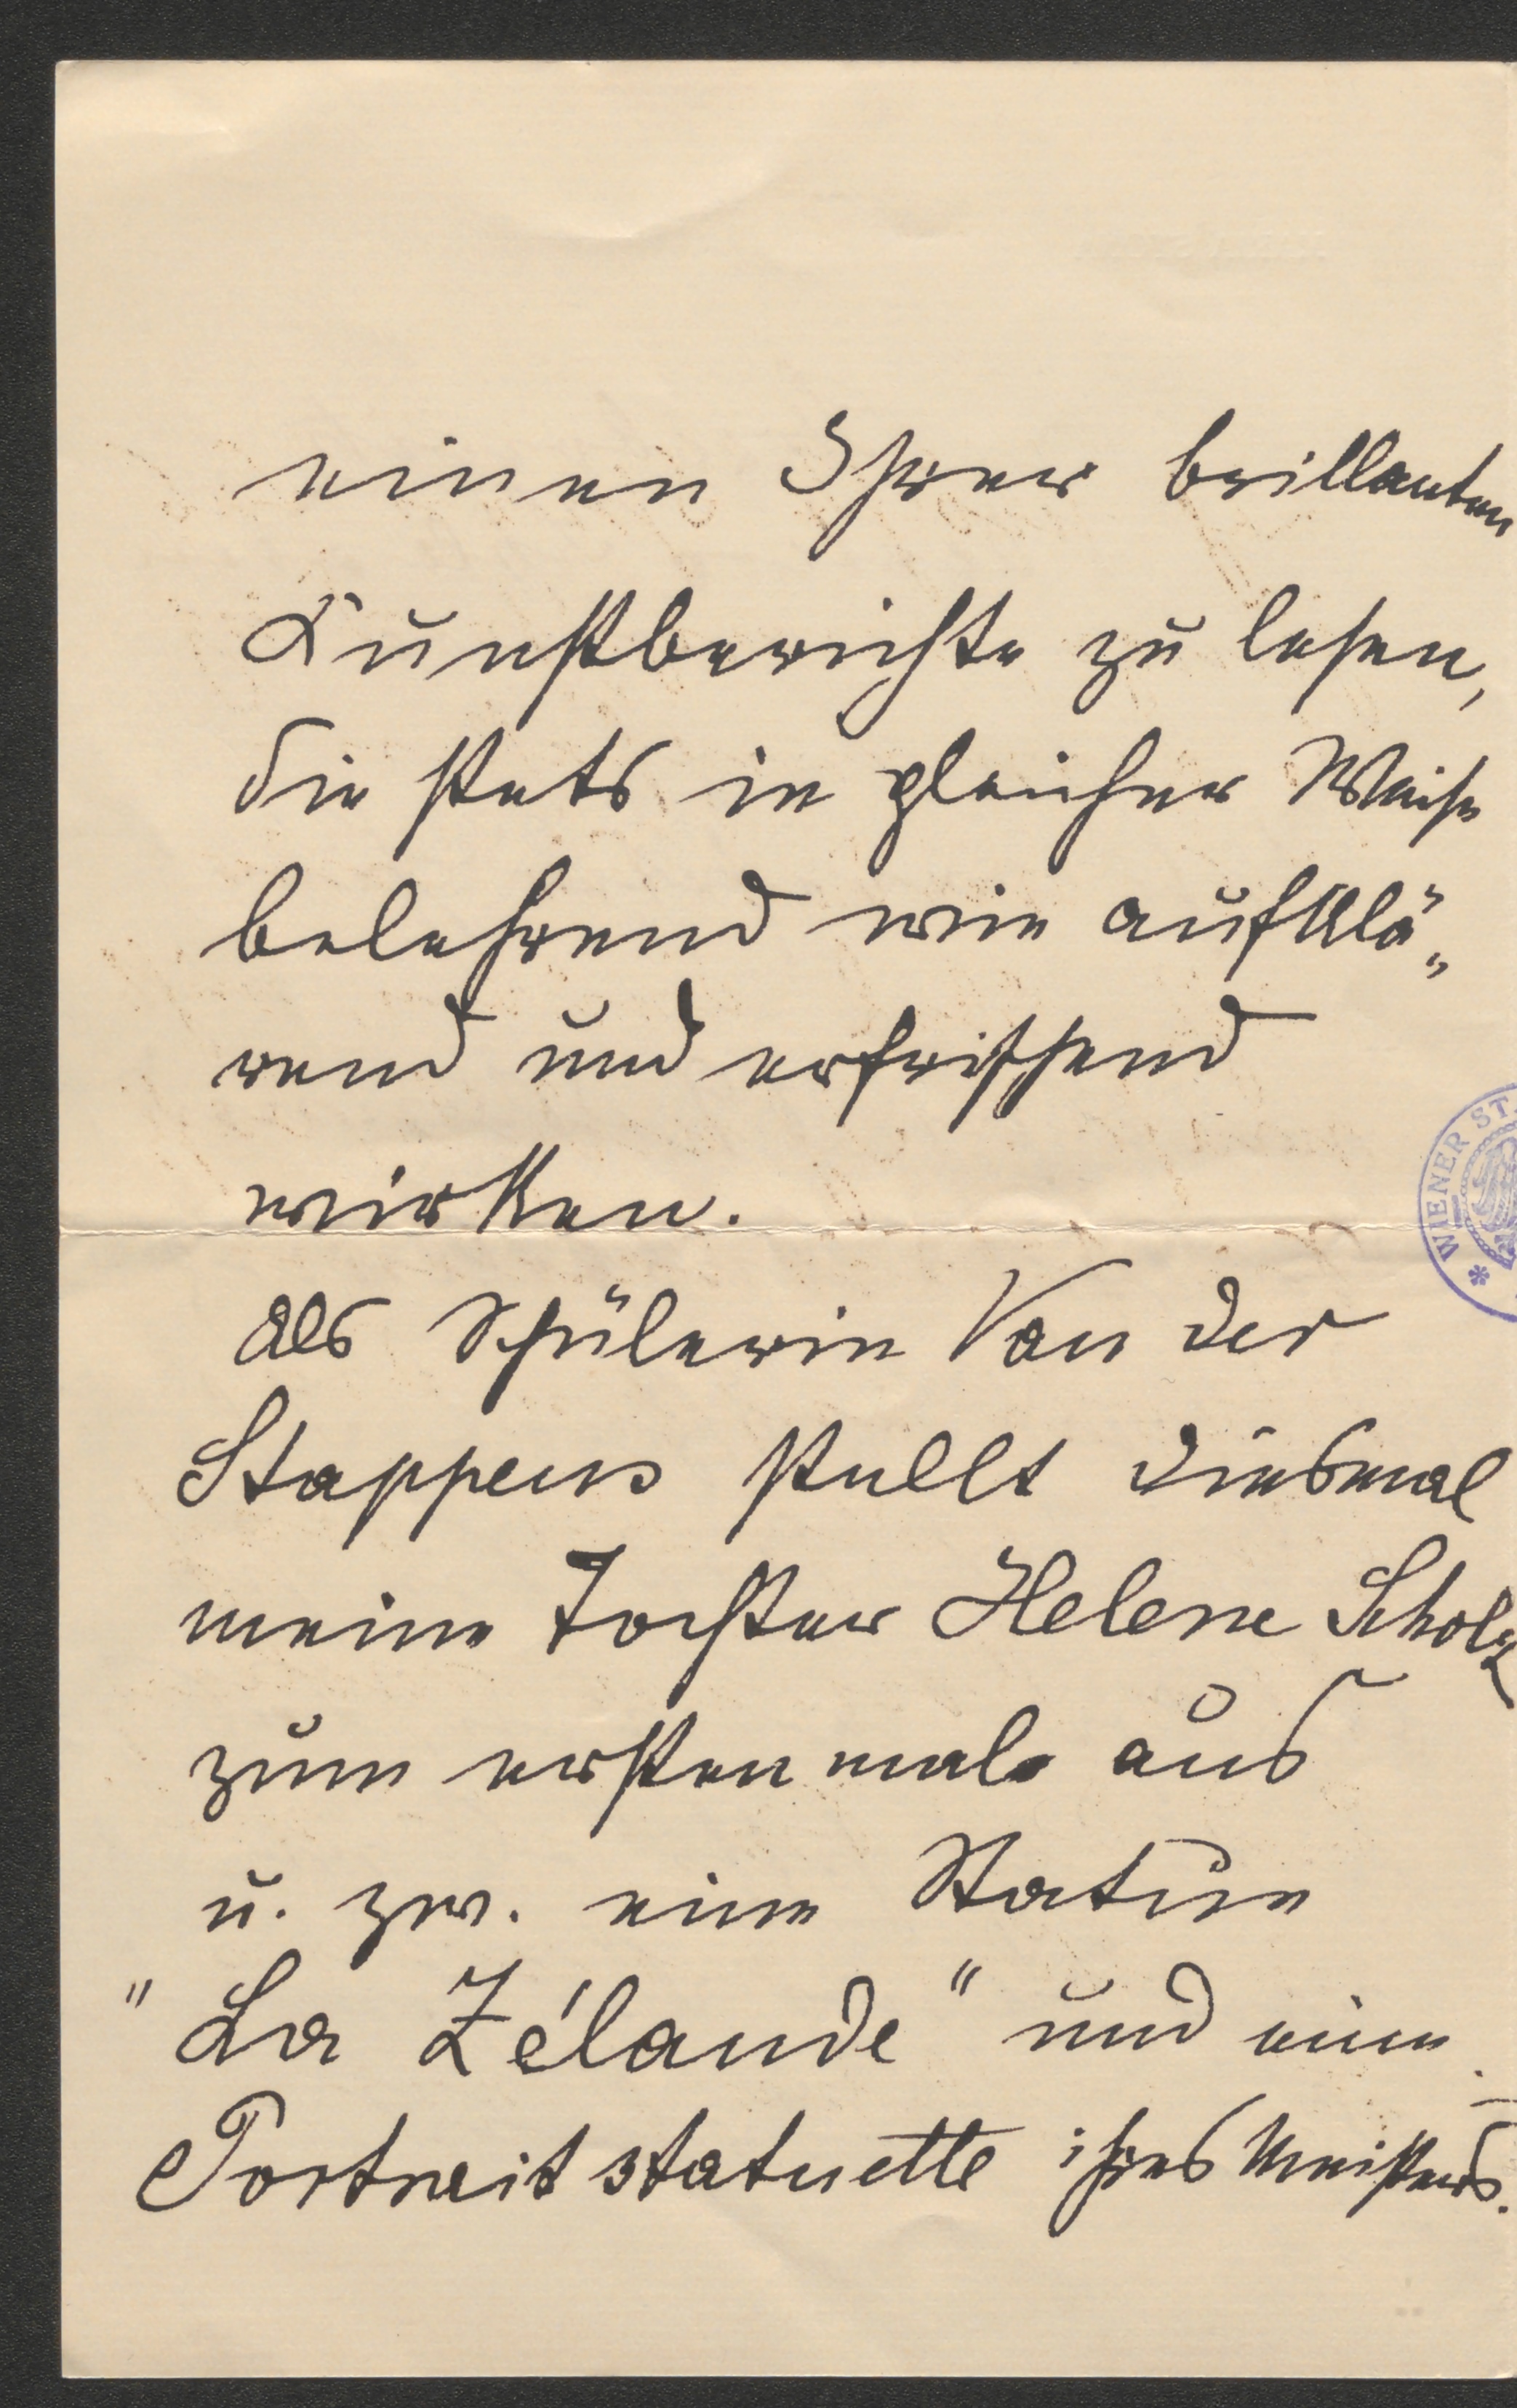 einen Ihrer brillanten
Kunstberichte zu lesen,
die stets in gleicher Weise
belehrend wie aufklä„
rend und erfrischend
wirken.
Als Schülerin Van der
Stappens stellt diesmal
meine Tochter Helene Scholz
zum erstenmale aus
u. zw. eine Statue
"La Zélande" und eine
Portraitstatuette ihres Meisters.
* WIENER ST